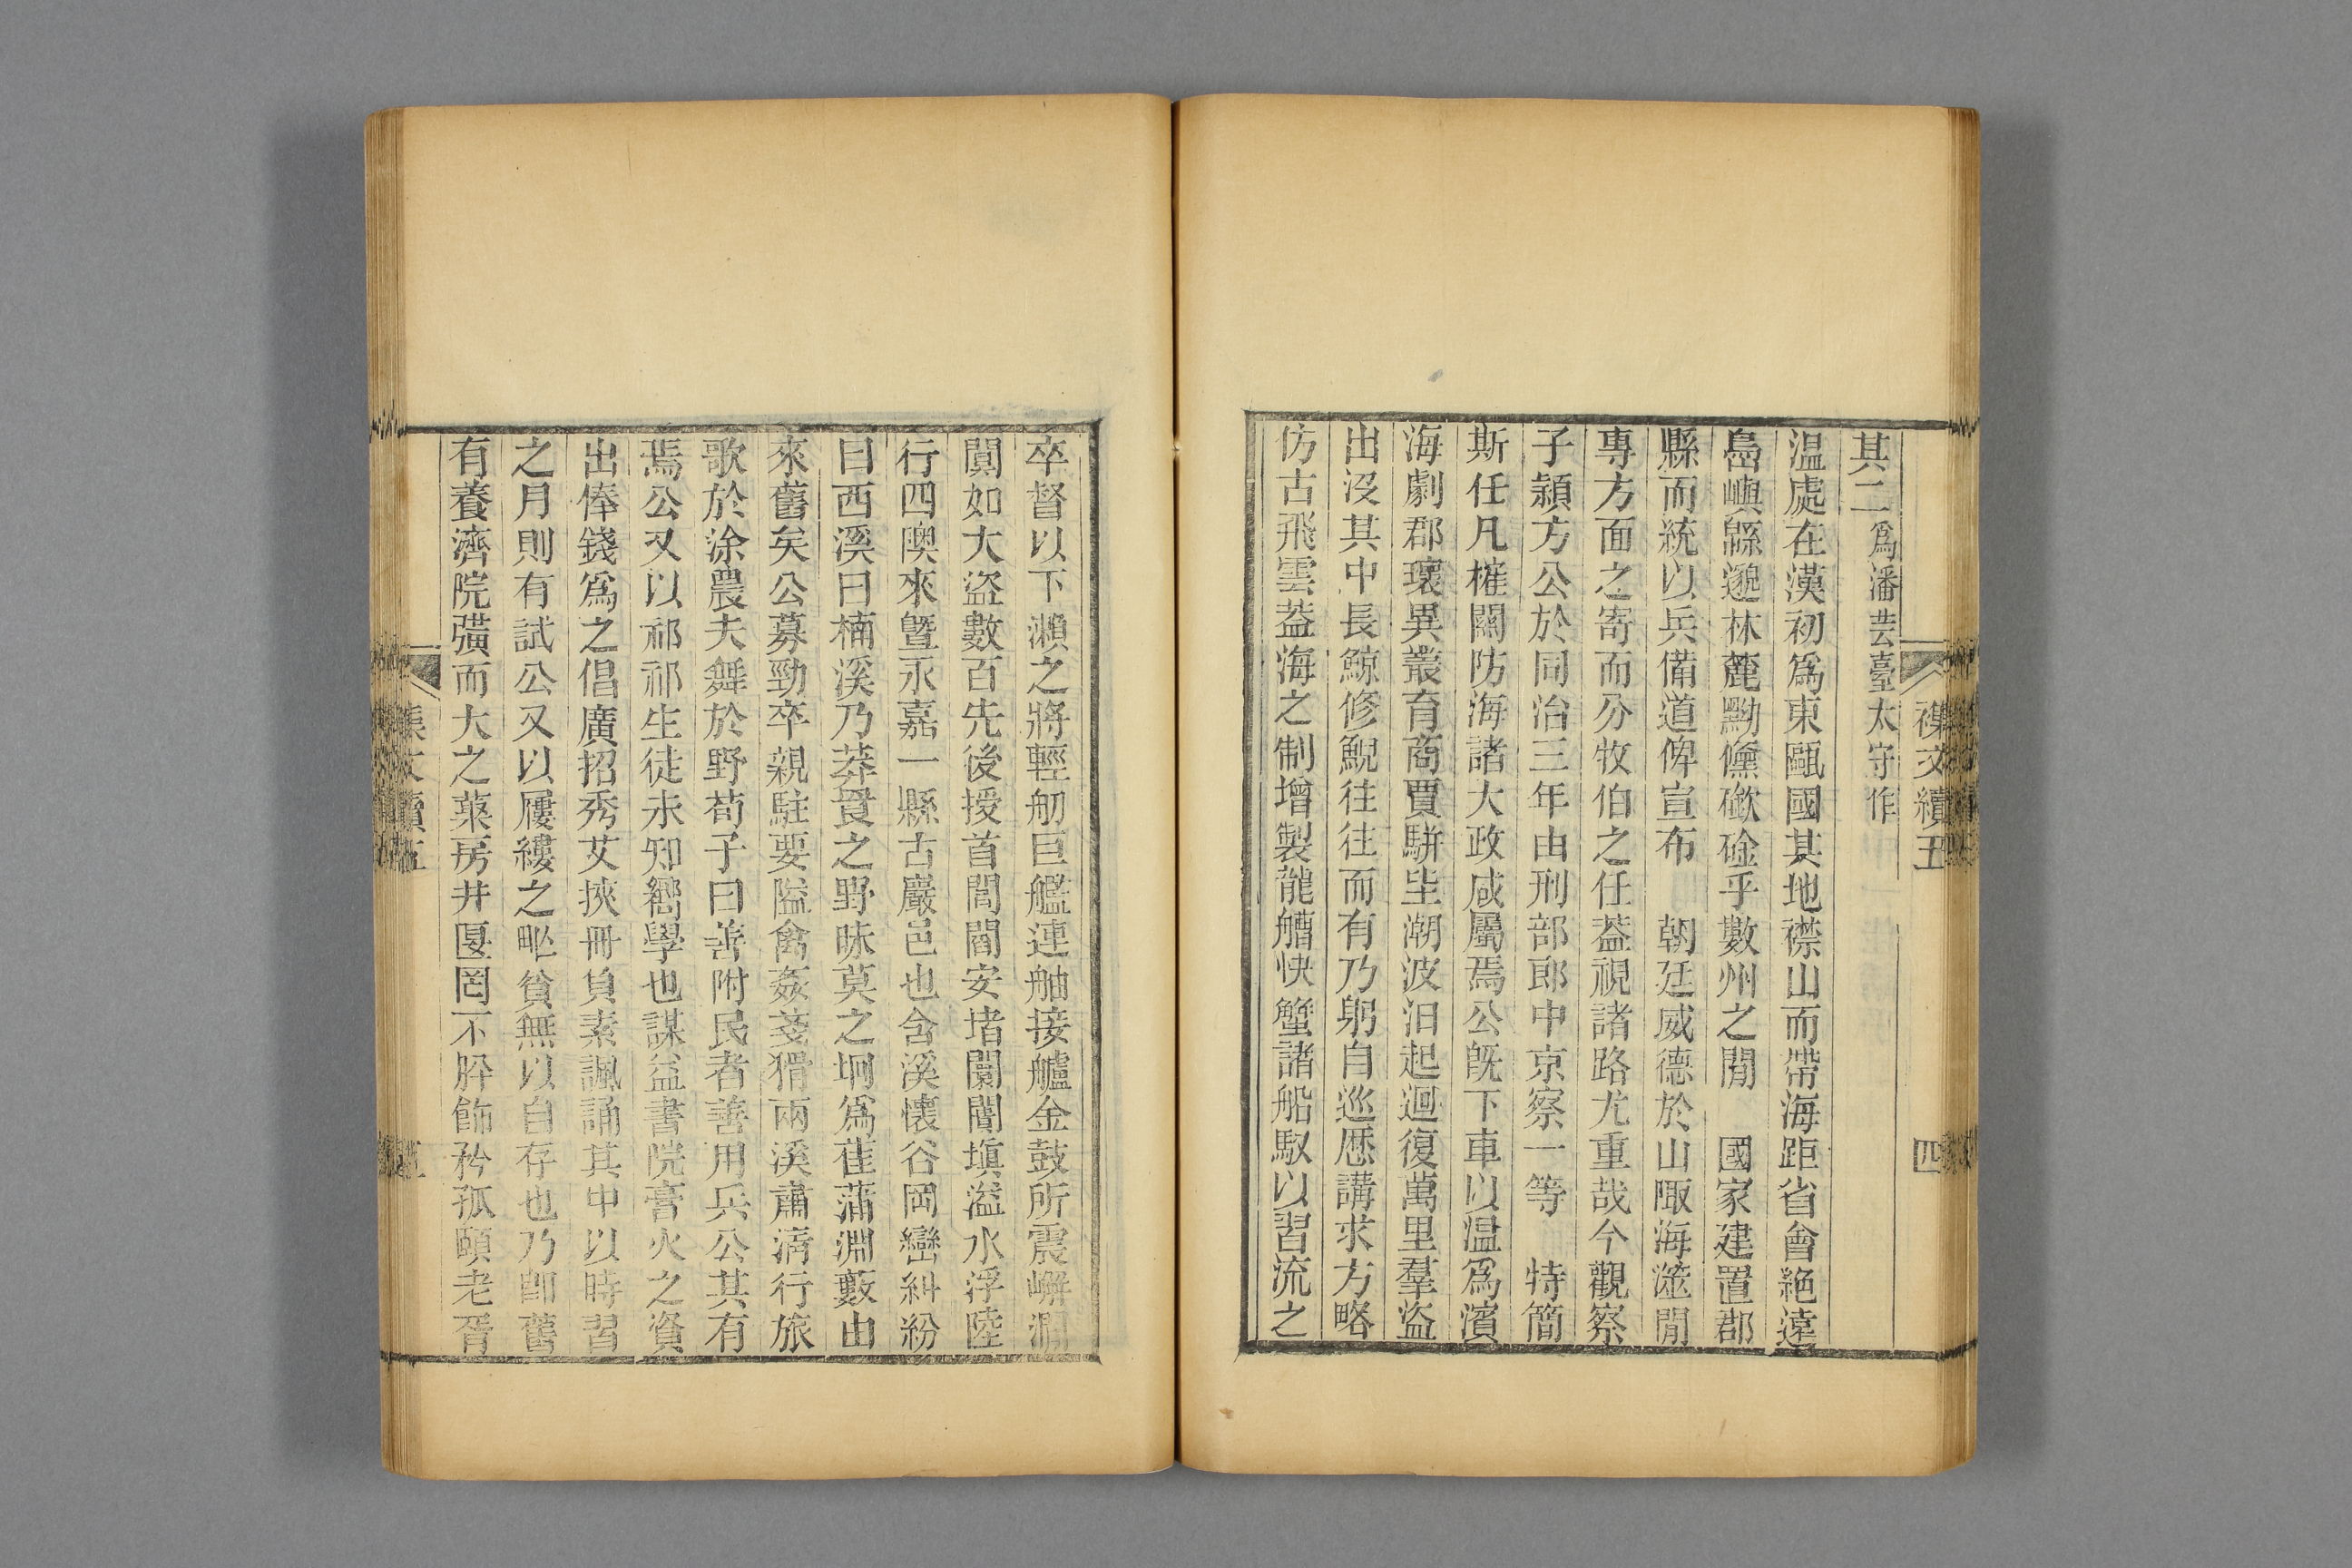 襍文續五 四
其二爲潘芸臺太守作
温處在漢初爲東甌國其地襟山而帶海距省會絶遠
島嶼緜邈林麓黝儵礮碒乎數州之閒 國家建置郡
縣而統以兵備道俾宣布 朝廷威德於山陬海澨閒
專方面之寄而分牧伯之任葢視諸路尤重哉今觀察
子頴方公於同治三年由刑部郎中京察一等 特簡
斯任凡榷關防海諸大政咸屬焉公旣下車以温爲濱
海劇郡瓌異叢育商賈駢坒潮波汨起迴復萬里羣盜
出沒其中長鯨修鯢往往而有乃躬自巡歷講求方略
仿古飛雲葢海之制增製龍艚快蟹諸船馭以習流之
卒督以下瀨之將輕舠巨艦連舳接艫金鼓所震嶰澗
闐如大盜數百先後授首閭閻安堵闤闠塡溢水浮陸
行四隩來曁永嘉一縣古巖邑也含溪懷谷岡巒糾紛
曰西溪曰楠溪乃莽罠之野昧莫之坰爲萑蒲淵藪由
來舊矣公募勁卒親駐要隘禽姦芟猾兩溪肅淸行旅
歌於涂農夫舞於野荀子曰善附民者善用兵公其有
焉公又以祁祁生徒未知嚮學也謀益書院膏火之資
出俸錢爲之倡廣招秀艾挾冊負素諷誦其中以時習
之月則有試公又以屨縷之甿貧無以自存也乃卽舊
有養濟院彉而大之藥房井匽罔不脺飾矜孤頤老胥
襍文續五 五